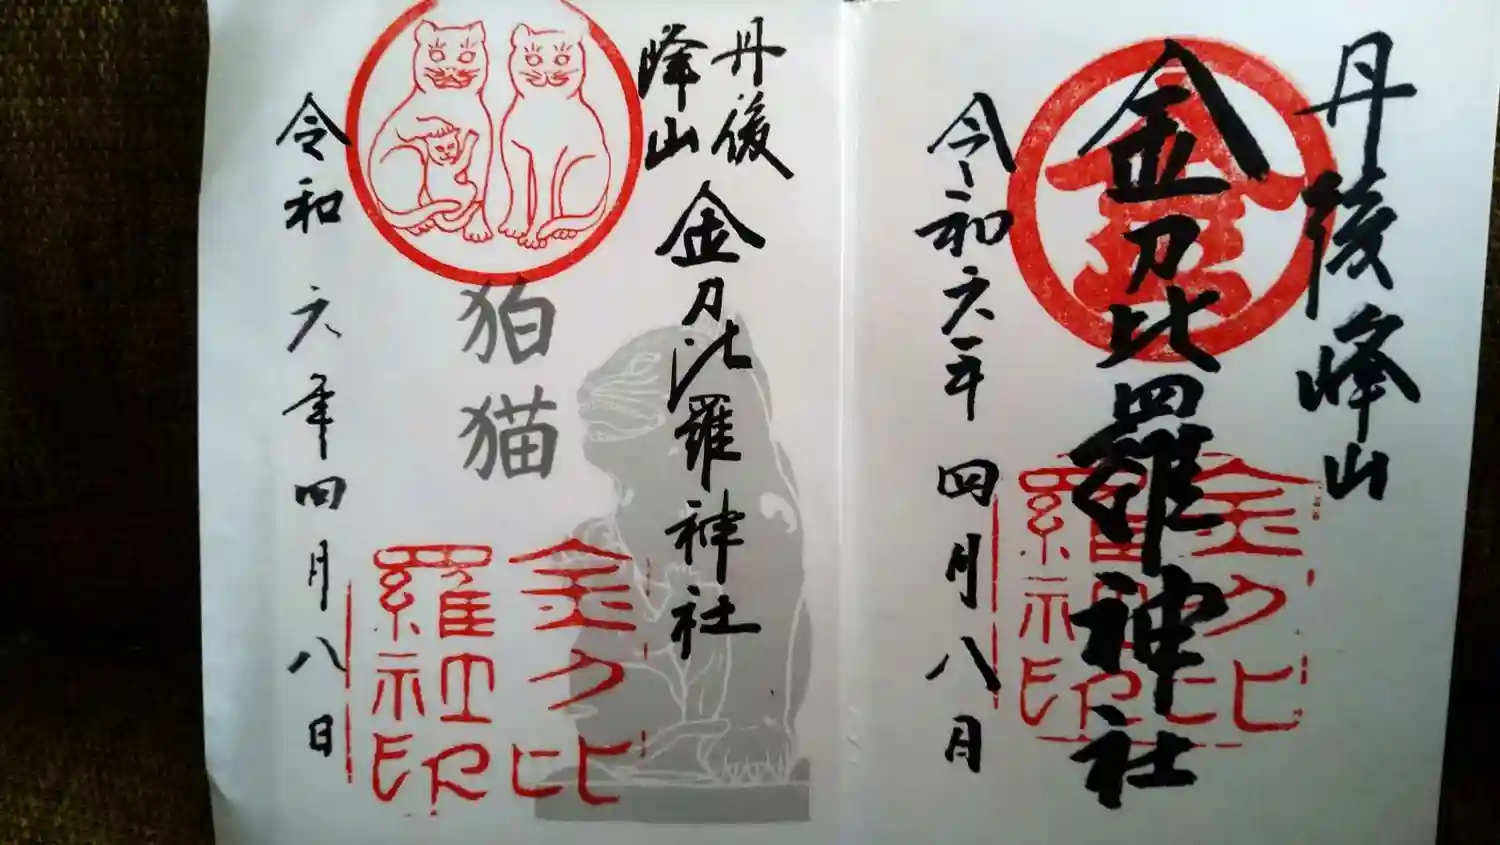 丹後峰山
金刀比羅神社
金
金刀比羅社印
令和六年四月八日
丹後
峰山
金刀比羅神社
狛猫
金刀比羅社印
令和六年四月八日